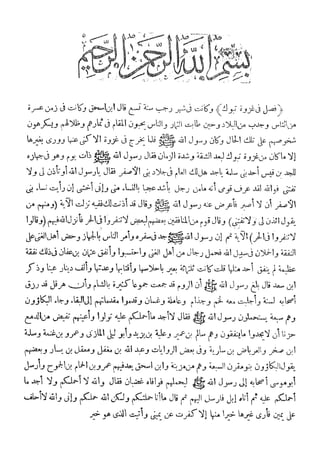 بسم الله الرحمن الرحيم
(فصل فى غزوة تبوك) وكانت فى شهر رجب سنة تسع قال ابن اسحق وكانت فى زمن عسرة
من الناس وجدب من البلاد وحين طابت الثمار والناس يحبون المقام فى ثمارهم وظلالهم ويكرهون
شخوصهم على تلك الحال وكان رسول الله ﷺ قلما يخرج فى غزوة الا كنى عنها وورى بغيرها
الا ما كان من غزوة تبوك لبعد الشقة وشدة الزمان فقال رسول الله ﷺ ذات يوم وهو فى جهازه
للجد بن قيس أحد بنى سلمة ياجد هل لك العام فى جلاد بنى الاصفر فقال يارسول الله أو تأذن لى ولا
تفتنى فوالله لقد عرف قومى أنه مامن رجل بأشد عجبا بالنساء منى وإنى أخشى إن رأيت نساء بنى
الاصفر أن لا أصبر فأعرض عنه رسول الله ﷺ وقال قد أذنت لك ففيه نزلت الآية (ومنهم من
يقول ائذن لى ولا تفتنى) وقال قوم من المنافقين بعضهم لبعض لاتنفروا فى الحر فأنزل الله فيهم (وقالوا
لاتنفروا فى الحر) الآية ثم إن رسول الله ﷺ جد فى سفره وأمر الناس بالجهاز وحض أهل الغنى على
النفقة والحملان فى سبيل الله فحمل رجال من أهل الغنى واحتسبوا وأنفق عثمان بن عفان فى ذلك نفقة
عظيمة لم ينفق أحد مثلها قلت كانت ثلثمائة بعير بأحلاسها وأقتابها وعدتها وألف دينار عينا وذكر
ابن سعد قال بلغ رسول الله ﷺ أن الروم قد جمعت جموعا كثيرة بالشام وأن هرقل قد رزق
أصحابه لسنة وأجلبت معه لخم وجذام وعاملة وغسان وقدموا مقدماتهم إلى البلقاء وجاء البكاؤون
وهم سبعة يستحملون رسول الله ﷺ فقال لا أجد ما أحملكم عليه تولوا وأعينهم تفيض من الدمع
حزنا أن لايجدوا ماينفقون وهم سالم بن عمير وعلبة بن يزيد وأبو ليلى المازنى وعمرو بن غنمة وسلمة
ابن صخر والعرباض بن سارية وفى بعض الروايات وعبد الله بن مغفل ومعقل بن يسار وبعضهم
يقول البكاؤون بنو مقرن السبعة وهم من مزينة وابن اسحق يعد فيهم عمرو بن الحمام بن الجموح وأرسل
أبو موسى أصحابه إلى رسول الله ﷺ ليحملهم فوافاه غضبان فقال والله لا أحملكم ولا أجد ما
أحملكم عليه ثم أتاه إبل فأرسل اليهم ثم قال ما أنا حملتكم ولكن الله حملكم وإنى والله لاأحلف
على يمين فأرى غيرها خيرا منها إلا كفرت عن يمينى وأتيت الذى هو خير